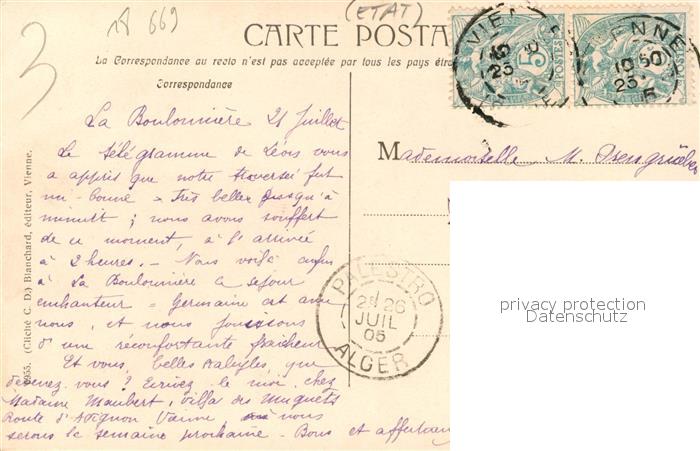 18 669
(ETAT)
3
CARTE POSTA
La Correspondance au recto n'est pas acceptée par tous les pays étra
Correspondance
VIENNE
25
5
VIENNE
10 50
25
5
La Boulonnière 21 Juillet
Le télégramme de Léon vous
a appris que notre traversée fut
mi-bonne - très belle jusqu'à
minuit ; nous avons souffert
de ce moment, à l'arrivée
à 2 heures. - Nous voilà enfin
à La Boulonnière ce séjour
enchanteur - Germaine est avec
nous, et nous jouissons
d'une réconfortante fraîcheur
Et vous, belles Kabyles, que
devenez-vous ? Ecrivez le moi, chez
Madame Maubert, villa des Muguets
Route d'Avignon Vienne, nous
serons la semaine prochaine - Bons et affectueux
Mademoiselle M.
PALESTRO
2E 26
JUIL
05
ALGER
privacy protection
Datenschutz
(Cliché C. D.) Blanchard, éditeur, Vienne.